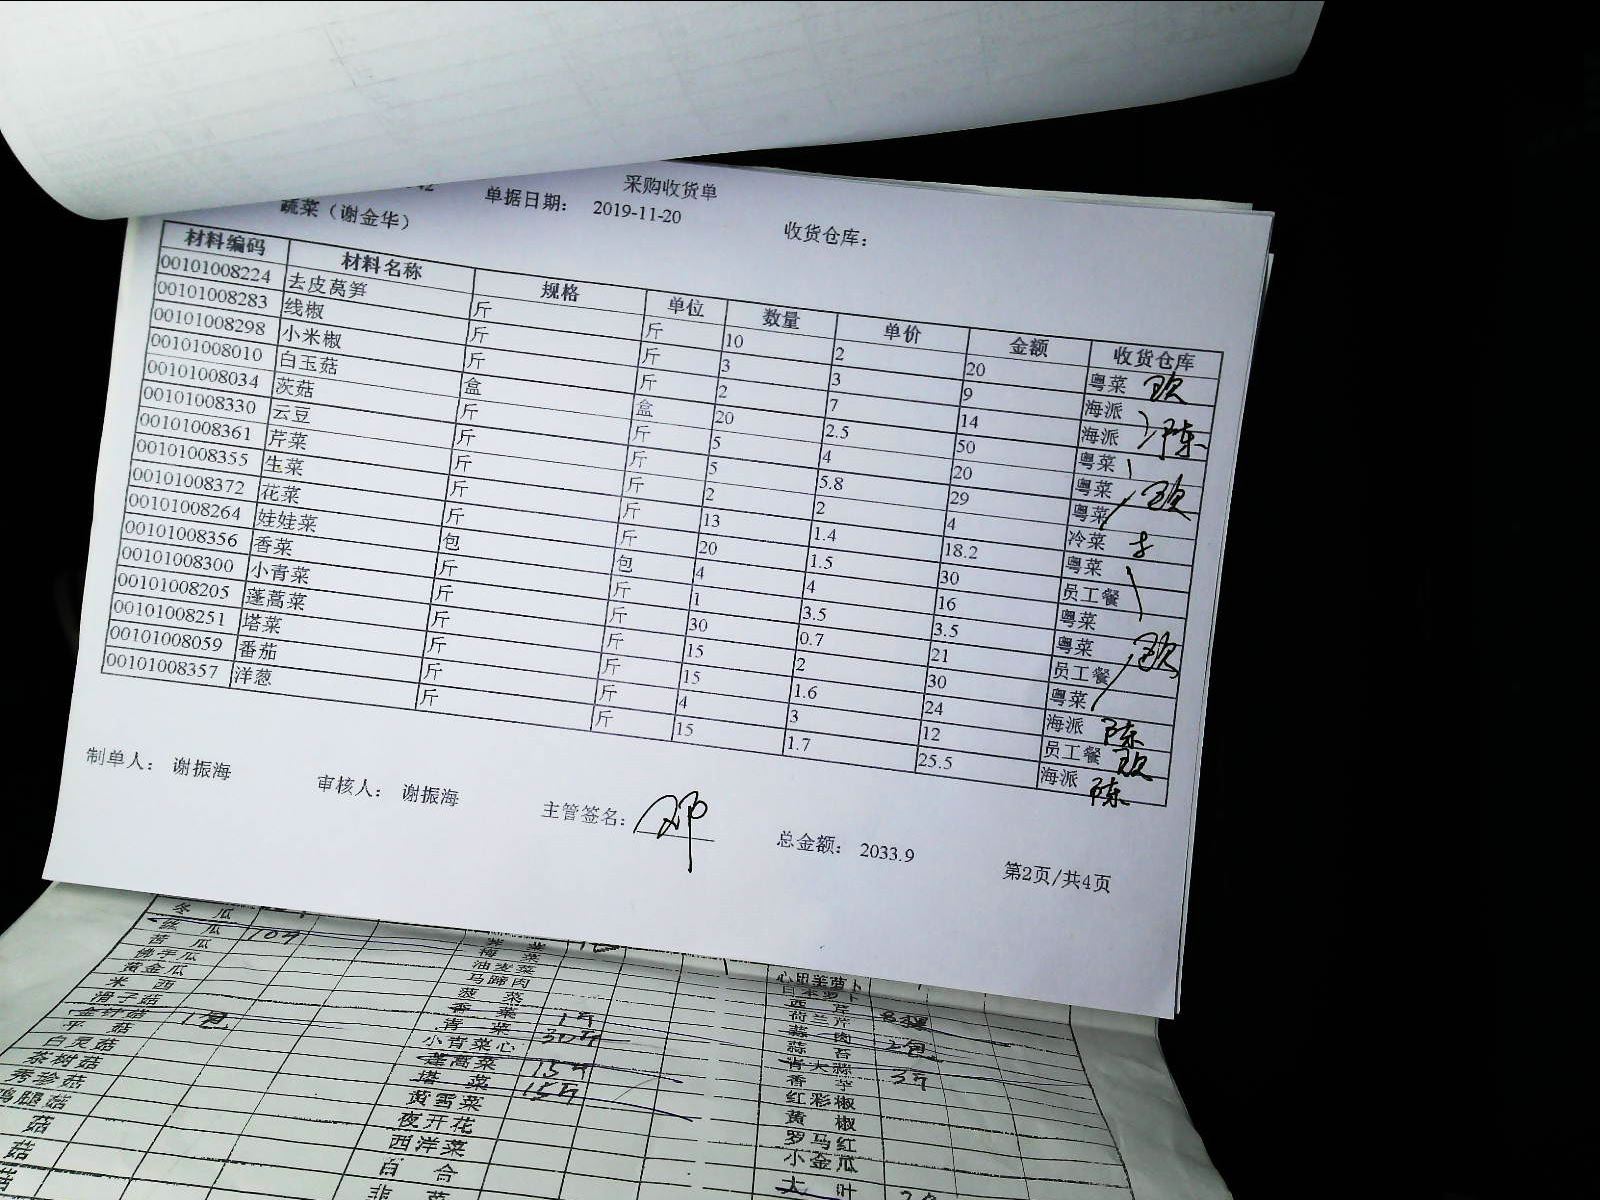 采购收货单
42 单据日期： 2019-11-20 收货仓库：
蔬菜（谢金华）
材料编码 材料名称 规格 单位 数量 单价 金额 收货仓库
00101008224 去皮莴笋 斤 斤 10 2 20 粤菜
00101008283 线椒 斤 斤 3 3 9 海派
00101008298 小米椒 斤 斤 2 7 14 海派 陈
00101008010 白玉菇 盒 盒 20 2.5 50 粤菜
00101008034 茨菇 斤 斤 5 4 20 粤菜
00101008330 云豆 斤 斤 5 5.8 29 粤菜
00101008361 芹菜 斤 斤 2 2 4 冷菜
00101008355 生菜 斤 斤 13 1.4 18.2 粤菜
00101008372 花菜 斤 斤 20 1.5 30 员工餐
00101008264 娃娃菜 包 包 4 4 16 粤菜
00101008356 香菜 斤 斤 1 3.5 3.5 粤菜
00101008300 小青菜 斤 斤 30 0.7 21 员工餐
00101008205 蓬蒿菜 斤 斤 15 2 30 粤菜
00101008251 塔菜 斤 斤 15 1.6 24 海派 陈
00101008059 番茄 斤 斤 4 3 12 员工餐
00101008357 洋葱 斤 斤 15 1.7 25.5 海派 陈
制单人： 谢振海 审核人： 谢振海 主管签名： 邓 总金额： 2033.9 第2页/共4页
冬瓜
丝瓜 10斤
苦瓜 梅菜 心里美萝卜
佛手瓜 油麦菜 日本萝卜
黄金瓜 马蹄肉 西芹
米西 菠菜 荷兰芹
滑子菇 香菜 1斤 蒜肉
金针菇 1包 青菜 30斤 蒜苔
平菇 小青菜心 青大蒜 3斤
白灵菇 蓬蒿菜 15斤 香芋
茶树菇 塔菜 15斤 红彩椒
秀珍菇 黄雪菜 黄椒
鸡腿菇 夜开花 罗马红
菇 西洋菜 小金瓜
菇 百合 大叶